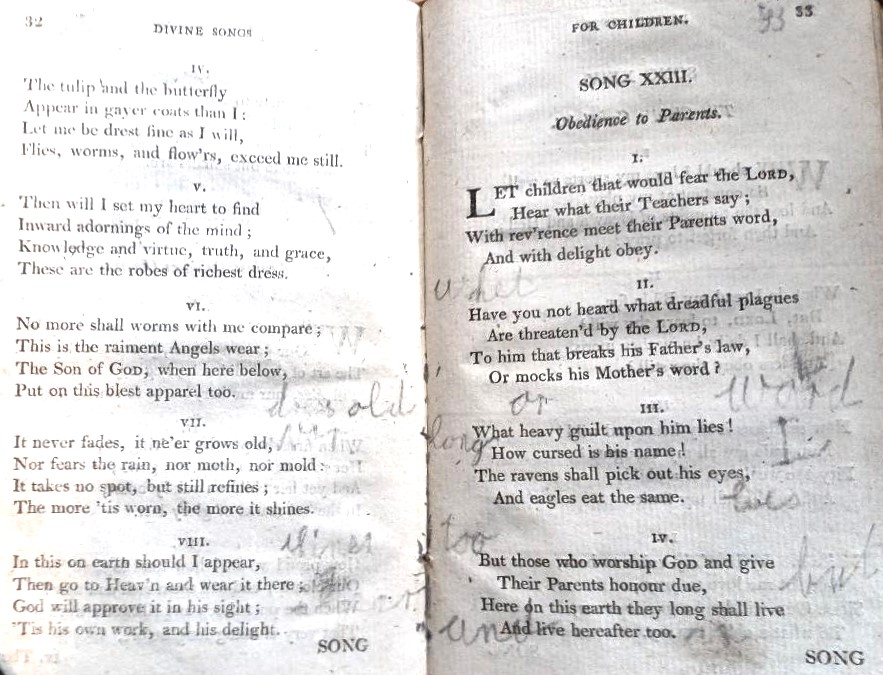 32
DIVINE SONGS
IV.
The tulip and the butterfly
Appear in gayer coats than I:
Let me be drest fine as I will,
Flies, worms, and flow'rs, exceed me still.
V.
Then will I set my heart to find
Inward adornings of the mind;
Knowledge and virtue, truth, and grace,
These are the robes of richest dress.
VI.
No more shall worms with me compare;
This is the raiment Angels wear;
The Son of GOD, when here below,
Put on this blest apparel too.
old
VII.
It never fades, it ne'er grows old,
Nor fears the rain, nor moth, nor mold:
It takes no spot, but still refines;
The more 'tis worn, the more it shines.
VIII.
In this on earth should I appear,
Then go to Heav'n and wear it there;
God will approve it in his sight;
'Tis his own work, and his delight.
SONG
FOR CHILDREN.
33 33
SONG XXIII.
Obedience to Parents.
I.
LET children that would fear the LORD,
Hear what their Teachers say;
With rev'rence meet their Parents word,
And with delight obey.
what
II.
Have you not heard what dreadful plagues
Are threaten'd by the LORD,
To him that breaks his Father's law,
Or mocks his Mother's word?
or word
III.
What heavy guilt upon him lies!
long
How cursed is his name!
The ravens shall pick out his eyes,
And eagles eat the same.
lies
too
IV.
But those who worship GOD and give
Their Parents honour due,
but
Here on this earth they long shall live
And live hereafter too.
SONG